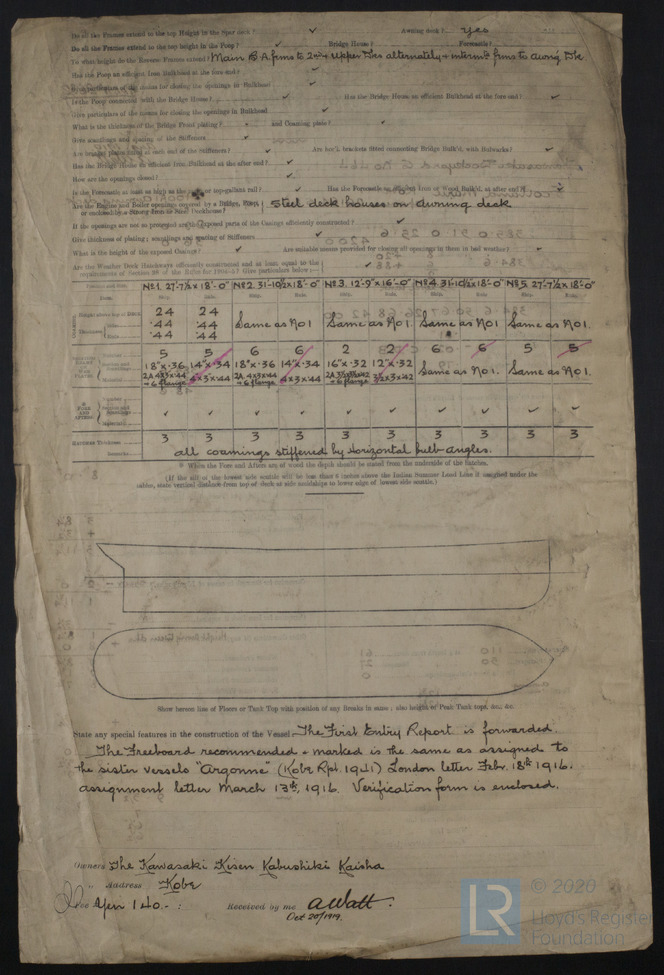 Do all the Frames extend to the top Height in the Spar deck? ✓ Awning deck? Yes
Do all the Frames extend to the top height in the Poop? ✓ Bridge House? Forecastle?
To what height do the Reverse Frames extend? Main B.A. frms to 2nd & upper Dks alternately & intermte frms to awng Dk
Has the Poop an efficient Iron Bulkhead at the fore end? ✓
Give particulars of the means for closing the openings in Bulkhead ✓
Is the Poop connected with the Bridge House? ✓ Has the Bridge House an efficient Bulkhead at the fore end? ✓
Give particulars of the means for closing the openings in Bulkhead ✓
What is the thickness of the Bridge Front plating? and Coaming plate? ✓
Give scantlings and spacing of the Stiffeners ✓
Are bracket plates fitted at each end of the Stiffeners? ✓ Are bracket plates fitted connecting Bridge Bulk'd. with Bulwarks? ✓
Has the Bridge House an efficient Iron Bulkhead at the after end? ✓
How are the openings closed? ✓
Is the Forecastle at least as high as the or top-gallant rail? ✓ Has the Forecastle an efficient Iron or Wood Bulk'd. at after end? ✓
Are the Engine and Boiler openings covered by a Bridge, Poop, or enclosed by a Strong Iron or Steel Deckhouse? Steel deck houses on awning deck
If the openings are not so protected are the Exposed parts of the Casings efficiently constructed? ✓
Give thickness of plating; scantlings and spacing of Stiffeners ✓
What is the height of the exposed Casings? ✓ Are suitable means provided for closing all openings in them in bad weather? ✓
Are the Weather Deck Hatchways efficiently constructed and at least equal to the requirements of Section of the Rules for 1904-5? Give particulars below:—
No 1. 27'-7½ x 18'-0" No 2. 31-10½ x 18'-0" No 3. 12'-9" x 16'-0" No 4. 31-10½ x 18'-0" No 5. 27'-7½ x 18'-0"
Height above top of 24 24
·44 ·44 Same as No 1 Same as No 1. Same as No 1 Same as No 1.
·44 ·44
5 5 6 6 2 2 6 6 5 5
18" x ·36 14" x ·34 18" x ·36 14" x ·34 16" x ·32 12" x ·32 Same as No 1. Same as No 1.
✓ ✓ ✓ ✓ ✓ ✓ ✓ ✓ ✓ ✓
Hatches Thickness 3 3 3 3 3 3 3 3 3 3
Remarks all coamings stiffened by Horizontal bulb-angles.
* When the Fore and Afters are of wood the depth should be stated from the underside of the hatches.
(If the sill of the lowest side scuttle will be less than 6 inches above the Indian Summer Load Line if assigned under the
tables, state vertical distance from top of deck at side amidships to lower edge of lowest side scuttle.)
Show hereon line of Floors or Tank Top with position of any Breaks in same; also height of Peak Tank tops, &c., &c.
State any special features in the construction of the Vessel The First Entry Report is forwarded.
The Freeboard recommended & marked is the same as assigned to
the sister vessels "Argonne" (Kobe Rpt. 1941) London letter Febr. 18th 1916.
assignment letter March 13th, 1916. Verification form is enclosed.
Owners The Kawasaki Kisen Kabushiki Kaisha
Address Kobe
Fee Yen 140.- : Received by me A. Watt.
Oct 20/1919.
LR © 2020
Lloyd's Register
Foundation